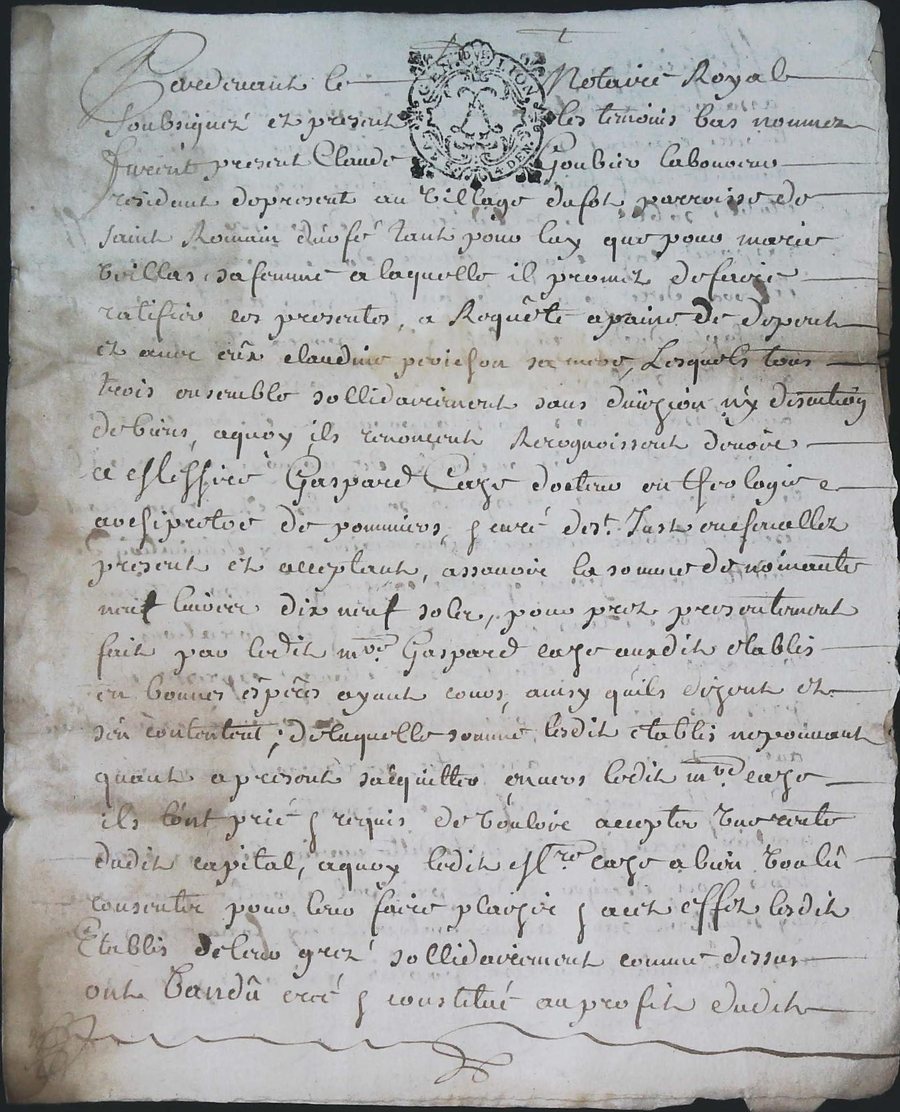 Pardevant le Notaire Royal
Soubsigné et present les temoins bas nommez
furent present Claude Goubier laboureur
residant depresent au village du fot parroisse de
saint Romain durfé tant pour luy que pour marie
Veillas sa femme a laquelle il promet de faire
ratifier ces presentes, a Requête a paine de depent
et avec eux claudine perichon sa mere, Lesquels tous
trois ensemble sollidairement sans division n'y discution
de biens, aquoy ils renonçent Recognoissent devoir
a Messire Gaspard Caze docteur en theologie
archiprêtre de pommiers, & curé de st. Just en chevallez
present et acceptant, assavoir la somme de nonante
neuf livres dix neuf soles, pour prez presentement
fait par ledit mre. Gaspard caze ausdit etablis
en bonnes espéces ayant cours, ainsy qu'ils dizent et
s'en contentent; de laquelle somme lesdit etablis ne pouvant
quant a present s'acquitter envers ledit mre. caze
ils l'ont prié & requis de vouloir accepter une rente
dudit capital, aquoy ledit Mre. caze a bien voulû
consentir pour leur faire plaizir & a cet effet lesdit
Etablis de leur grez sollidairement comme dessus
ont vandû creé & constitué au profit dudit
GEN DVE LION
4 DEN